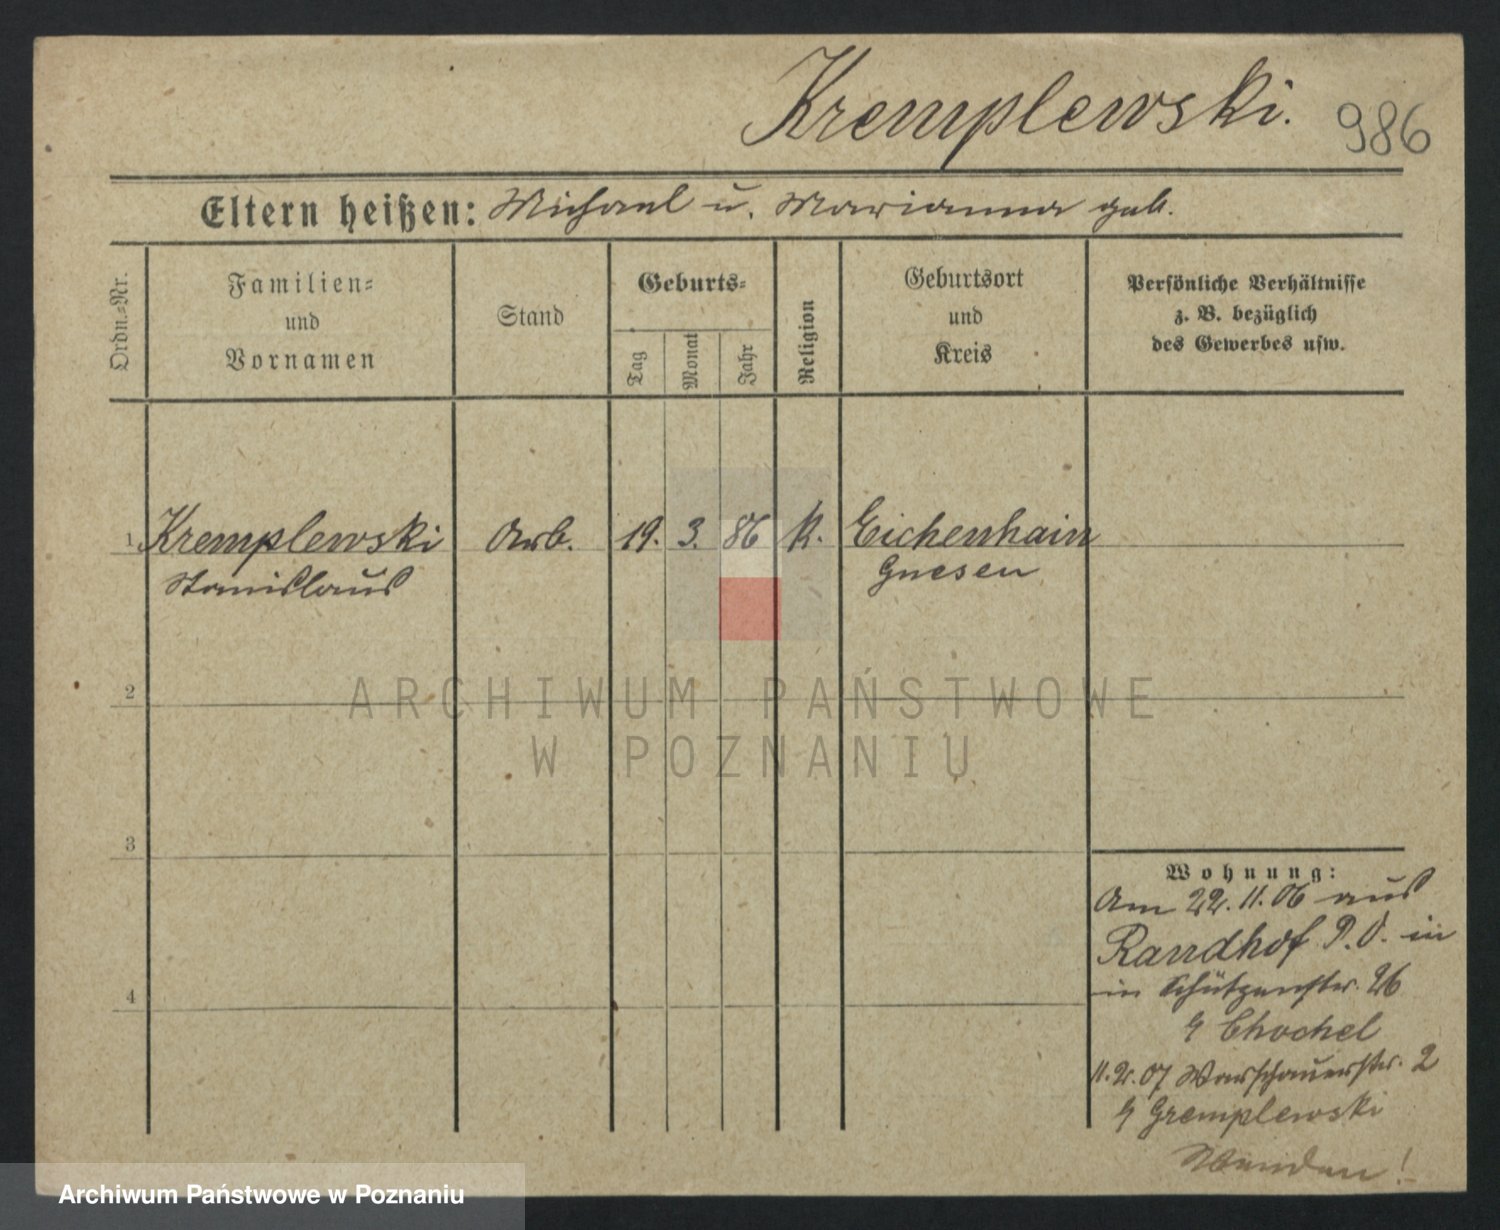 Kremplewski. 986
Eltern heißen: Michael u. Marianna geb.
Ordn.-Nr.
Familien-
und
Vornamen
Stand
Geburts-
Tag
Monat
Jahr
Religion
Geburtsort
und
Kreis
Persönliche Verhältnisse
z. B. bezüglich
des Gewerbes usw.
1 Kremplewski Arb. 19. 3. 86 k. Eichenhain
Stanislaus Gnesen
2
ARCHIWUM PAŃSTWOWE
W POZNANIU
3
Wohnung:
Am 22.11.06 aus
Randhof P.O. in
in Schützenstr. 26
Chochel
4
11.2.07 Warschauerstr. 2
Gremplewski
Wenden!
Archiwum Państwowe w Poznaniu